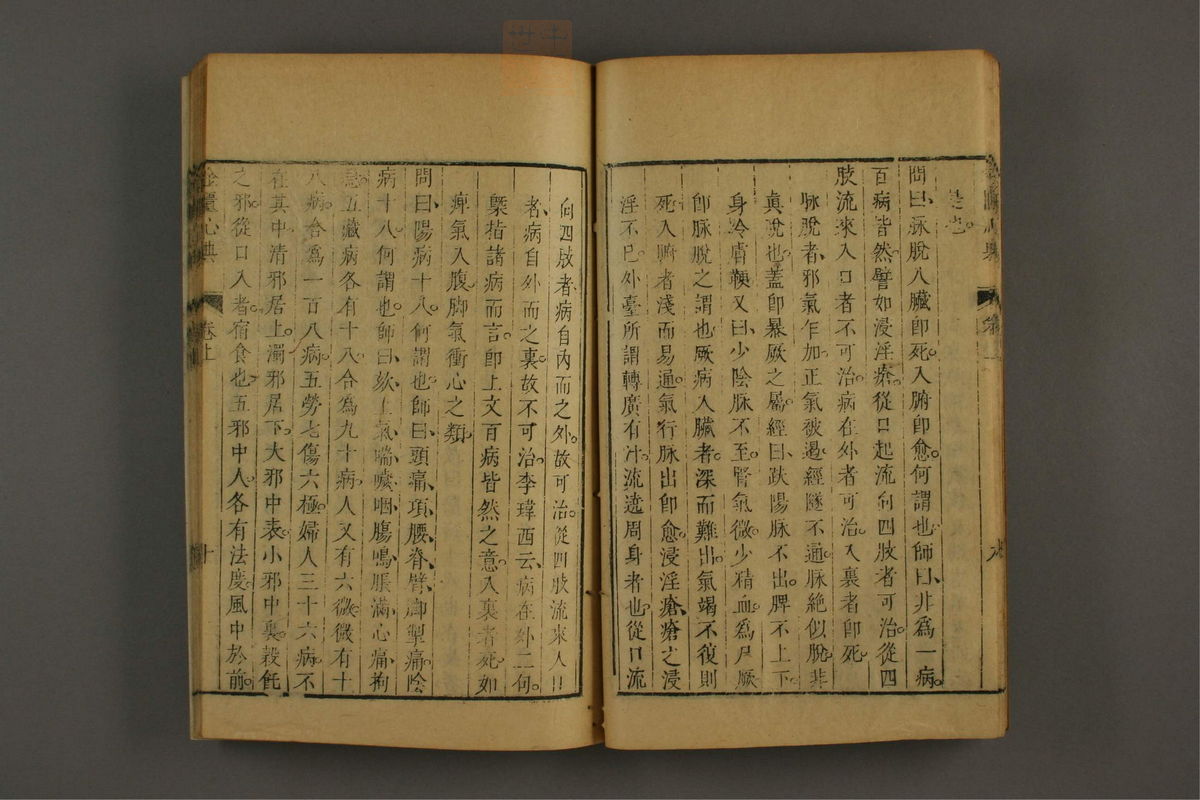 是也。
問曰、脉脫入臟卽死。入腑卽愈。何謂也。師曰、非爲一病。
百病皆然。譬如浸淫瘡。從口起流向四肢者可治。從四
肢流來入口者不可治。病在外者可治。入裏者卽死。
脉脫者、邪氣乍加。正氣被遏。經隧不通。脉絶似脫。非
眞脫也。蓋卽暴厥之屬。經曰、趺陽脉不出。脾不上下。
身冷膚鞕。又曰、少陰脉不至。腎氣微。少精血。爲尸厥。
卽脉脫之謂也。厥病入臟者。深而難出。氣竭不復則
死。入腑者淺而易通。氣行脉出卽愈。浸淫瘡、瘡之浸
淫不已。外臺所謂轉廣有汁。流遶周身者也。從口流
向四肢者、病自內而之外。故可治。從四肢流來入口
者、病自外而之裏。故不可治。李瑋西云、病在外二句。
槩指諸病而言。卽上文百病皆然之意。入裏者死。如
痺氣入腹、脚氣衝心之類。
問曰、陽病十八。何謂也。師曰、頭痛、項、腰、脊、臂、脚掣痛。陰
病十八。何謂也。師曰、欬、上氣、喘、噦、咽、腸鳴、脹滿、心痛、拘
急。五藏病各有十八。合爲九十病。人又有六微。微有十
八病。合爲一百八病。五勞七傷六極。婦人三十六病。不
在其中。清邪居上。濁邪居下。大邪中表。小邪中裏。穀飥
之邪。從口入者。宿食也。五邪中人。各有法度。風中於前。
金匱心典
卷上
十